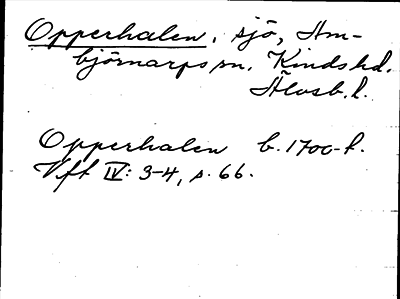 Opperhalen, sjö, Am-
björnarps sn. Kinds hd.
Älvsb. l.
Opperhalen b. 1700-t.
Vft IV: 3-4, s. 66.